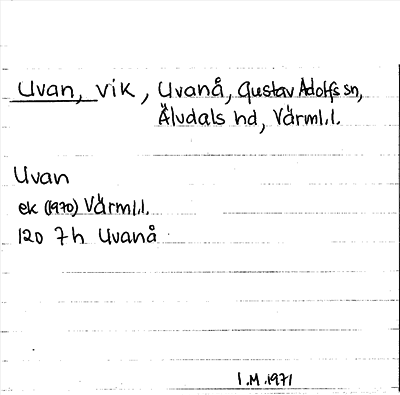 Uvan, vik, Uvanå, Gustav Adolfs sn,
Älvdals hd, Värml.l.
Uvan
ek (1970) Värml.l.
120 7h Uvanå
I.M.1971